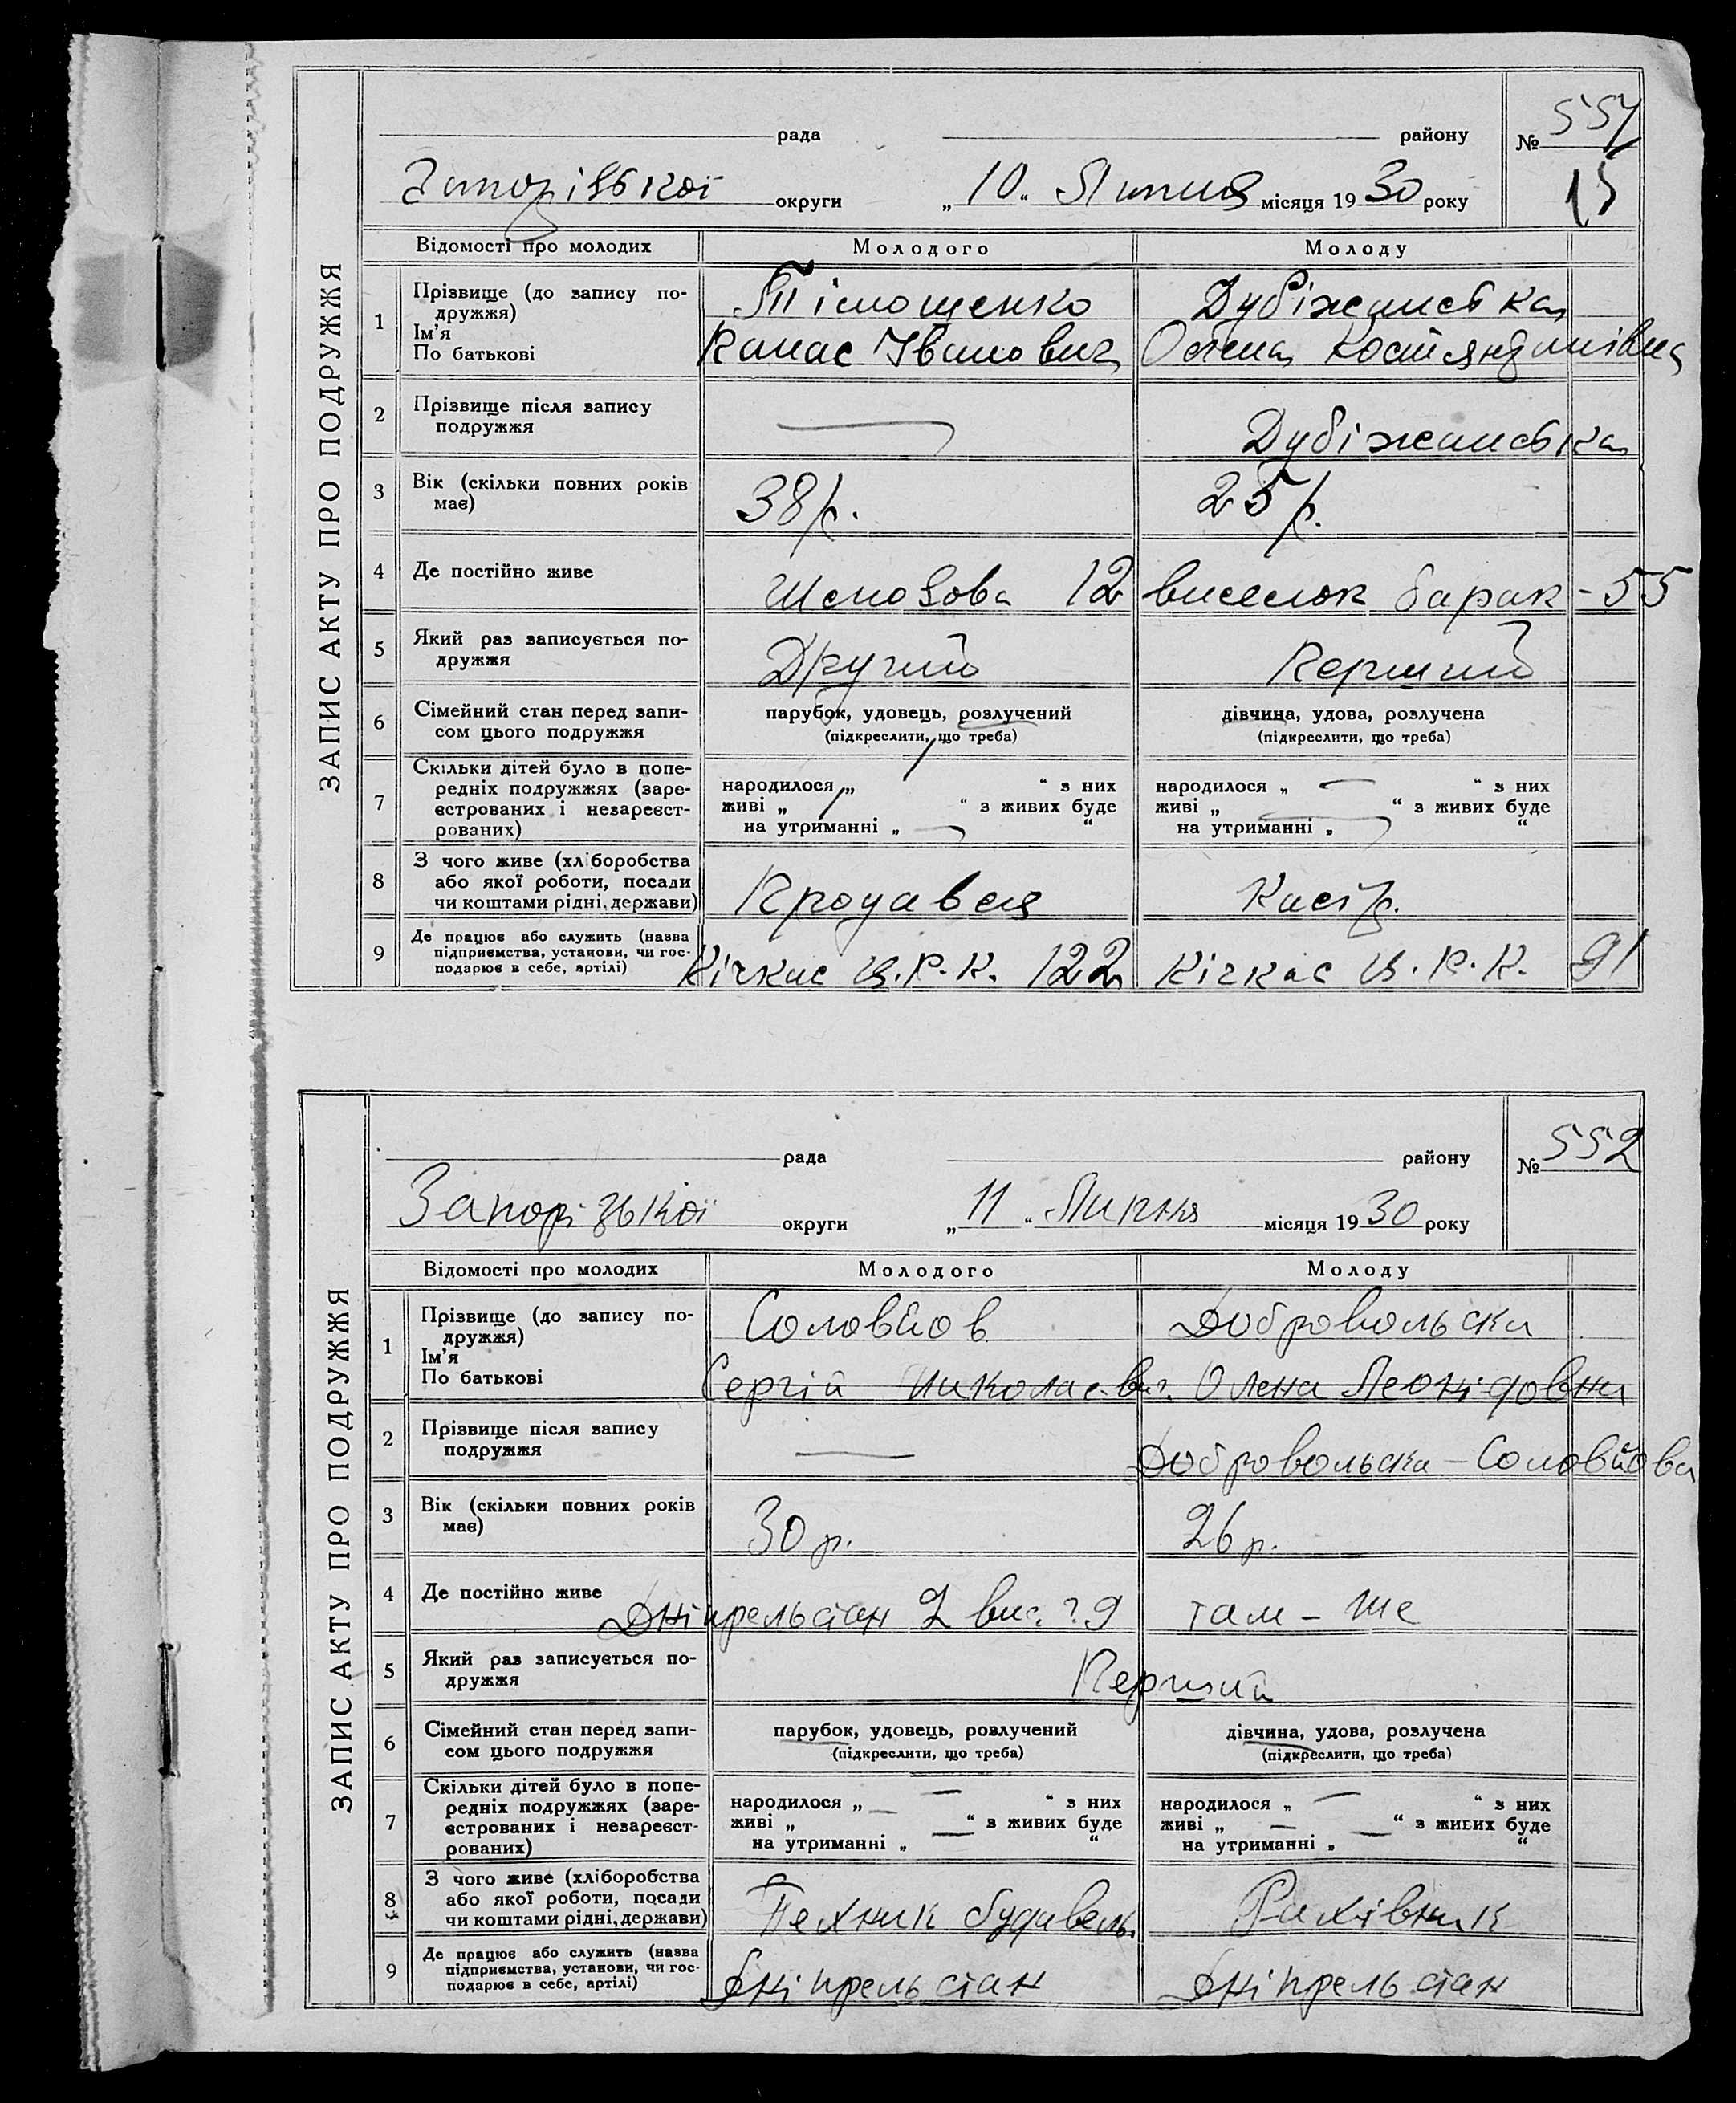 ЗАПИС АКТУ ПРО ПОДРУЖЖЯ
рада району № 551
Запорізької округи „10“ Липня місяця 1930 року 15
Відомості про молодих Молодого Молоду
1 Прізвище (до запису подружжя) Тімощенко
Ім'я
По батькові Іванович Костянтинівна
2 Прізвище після запису подружжя —
3 Вік (скільки повних років має) 38 р. 25 р.
4 Де постійно живе 12 виселок барак - 55
5 Який раз записується подружжя Другий Перший
6 Сімейний стан перед записом цього подружжя парубок, удовець, розлучений дівчина, удова, розлучена
(підкреслити, що треба) (підкреслити, що треба)
7 Скільки дітей було в попередніх подружжях (зареєстрованих і незареєстрованих) народилося „ “ з них народилося „ — “ з них
живі „ “ з живих буде живі „ “ з живих буде
на утриманні „ — “ на утриманні „ — “
8 З чого живе (хліборобства або якої роботи, посади чи коштами рідні, держави) Касір.
9 Де працює або служить (назва підприємства, установи, чи господарює в себе, артілі) Кічкас Ц.Р.К. 122 Кічкас Ц.Р.К. 91
ЗАПИС АКТУ ПРО ПОДРУЖЖЯ
рада району № 552
Запорізької округи „11“ Липня місяця 1930 року
Відомості про молодих Молодого Молоду
1 Прізвище (до запису подружжя) Соловйов Добровольска
Ім'я
По батькові Сергій Николаєвич Олена Леонідовна
2 Прізвище після запису подружжя — Добровольска-Соловйова
3 Вік (скільки повних років має) 30 р. 26 р.
4 Де постійно живе Дніпрельстан 2 там-же
5 Який раз записується подружжя Перший
6 Сімейний стан перед записом цього подружжя парубок, удовець, розлучений дівчина, удова, розлучена
(підкреслити, що треба) (підкреслити, що треба)
7 Скільки дітей було в попередніх подружжях (зареєстрованих і незареєстрованих) народилося „ — “ з них народилося „ — “ з них
живі „ — “ з живих буде живі „ — “ з живих буде
на утриманні „ — “ на утриманні „ — “
8 З чого живе (хліборобства або якої роботи, посади чи коштами рідні, держави) Технік будівель. Рахівник
9 Де працює або служить (назва підприємства, установи, чи господарює в себе, артілі) Дніпрельстан Дніпрельстан